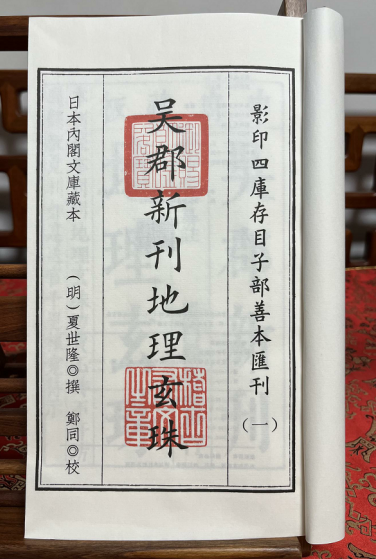 影印四庫存目子部善本匯刊（一）
吴郡新刊地理玄珠
日本內閣文庫藏本　（明）夏世隆◎撰　鄭同◎校